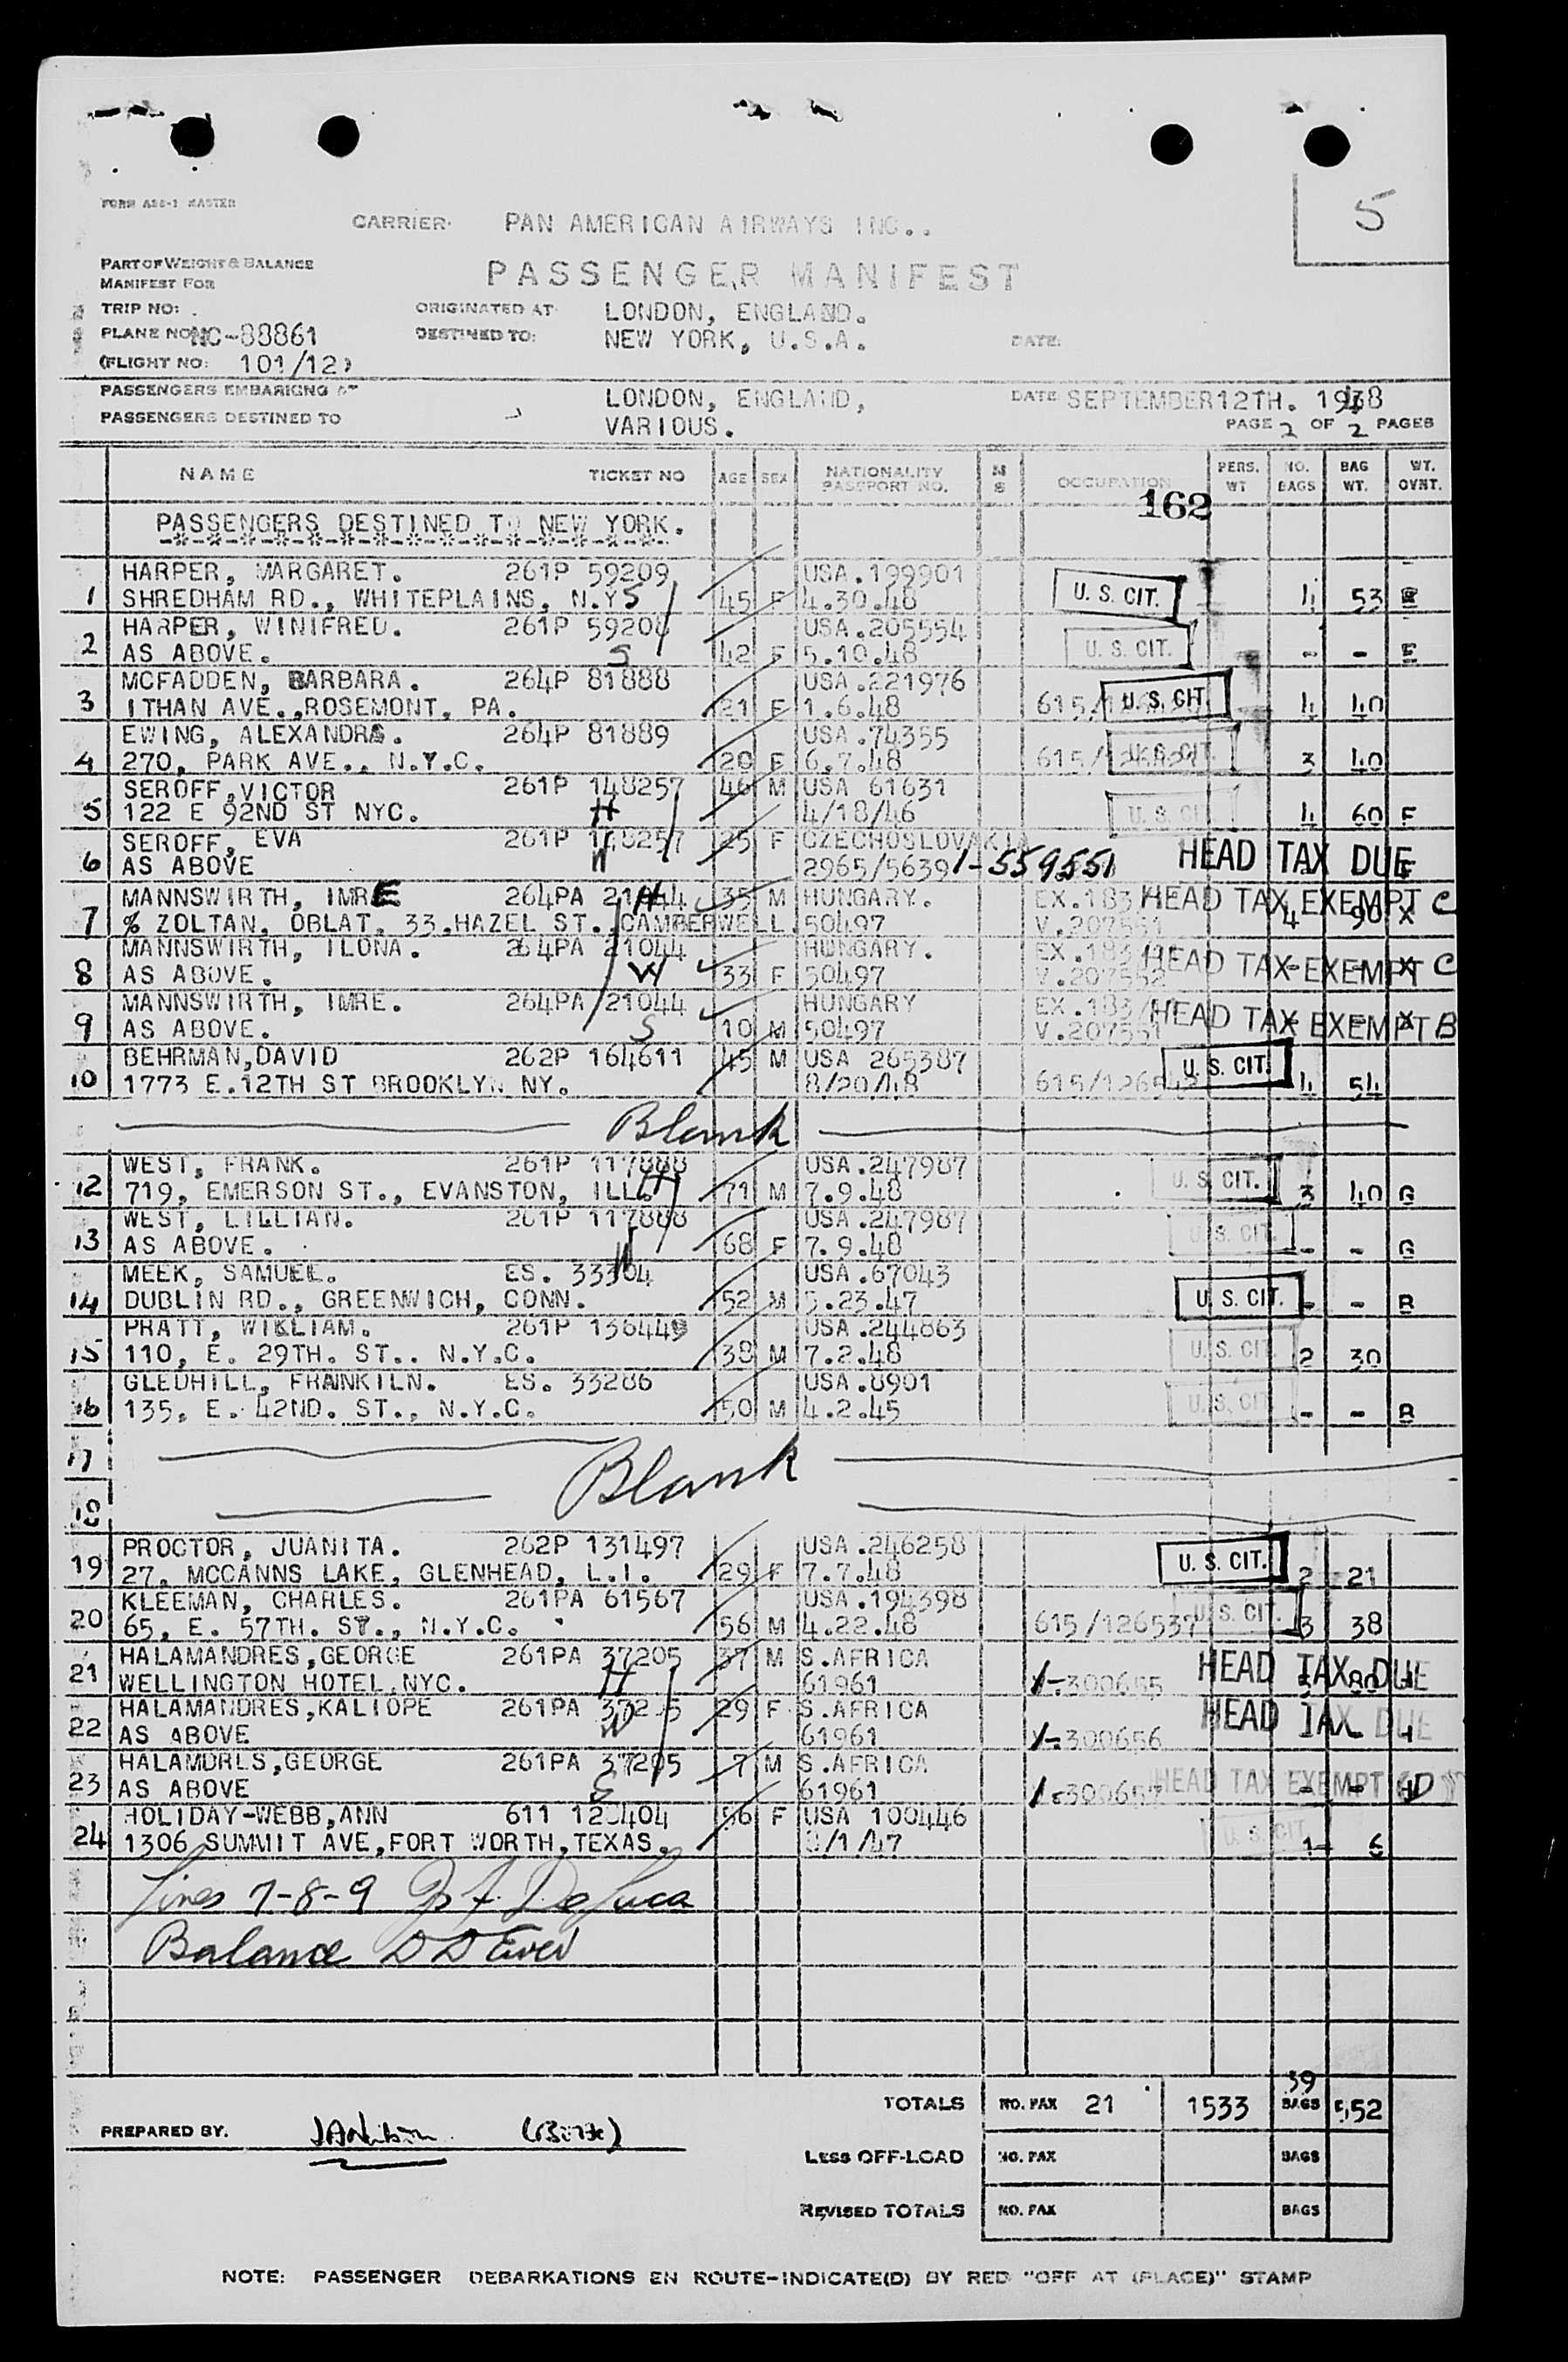 5
FORM ASS-1 MASTER
CARRIER. PAN AMERICAN AIRWAYS INC..
PART OF WEIGHT & BALANCE
MANIFEST FOR
PASSENGER MANIFEST
TRIP NO: ORIGINATED AT LONDON, ENGLAND.
PLANE NO: NC-88861 DESTINED TO: NEW YORK, U.S.A. DATE:
(FLIGHT NO: 101/12)
PASSENGERS EMBARKING AT LONDON, ENGLAND, DATE SEPTEMBER 12TH. 1948
PASSENGERS DESTINED TO VARIOUS. PAGE 2 OF 2 PAGES
NAME TICKET NO AGE SEX NATIONALITY PASSPORT NO. M S OCCUPATION PERS. WT NO. BAGS BAG WT. WT. OVNT.
162
PASSENGERS DESTINED TO NEW YORK.
-*-*-*-*-*-*-*-*-*-*-*-*-*-*-*-
HARPER, MARGARET. 261P 59209 USA.199901
1 SHREDHAM RD., WHITEPLAINS, N.Y S 45 F 4.30.48 U.S. CIT. 4 53
HARPER, WINIFRED. 261P 59208 USA.205554
2 AS ABOVE. S 42 F 5.10.48 U.S. CIT. - - F
MCFADDEN, BARBARA. 264P 81888 USA.221976
3 ITHAN AVE.,ROSEMONT, PA. 21 F 1.6.48 615/ U.S. CIT 4 40
EWING, ALEXANDRA. 264P 81889 USA.74355
4 270, PARK AVE., N.Y.C. 20 F 6.7.48 615/ U.S. CIT. 3 40
SEROFF,VICTOR 261P 148257 46 M USA 61631
5 122 E 92ND ST NYC. H 4/18/46 U.S. CIT 4 60 F
SEROFF, EVA 261P 148257 25 F CZECHOSLOVAKIA
6 AS ABOVE W 2965/5639 1-559551 HEAD TAX DUE
MANNSWIRTH, IMRE 264PA 21044 H 35 M HUNGARY. EX.183 HEAD TAX EXEMPT C
7 % ZOLTAN, OBLAT, 33.HAZEL ST., CAMBERWELL. 50497 V.207551 4 90 X
MANNSWIRTH, ILONA. 264PA 21044 HUNGARY. EX.183 HEAD TAX EXEMPT C
8 AS ABOVE. W 33 F 50497 V.207552 - - X
MANNSWIRTH, IMRE. 264PA 21044 HUNGARY EX.183 HEAD TAX EXEMPT B
9 AS ABOVE. S 10 M 50497 V.207551 - - X
BEHRMAN,DAVID 262P 164611 45 M USA 265387
10 1773 E.12TH ST BROOKLYN NY. 8/20/48 615/126542 U.S. CIT. 4 54
Blank
WEST, FRANK. 261P 117888 USA.247987
12 719, EMERSON ST., EVANSTON, ILL. H 71 M 7.9.48 U.S. CIT. 3 40 G
WEST, LILLIAN. 261P 117888 USA.247987
13 AS ABOVE. W 68 F 7.9.48 U.S. CIT. - - G
MEEK, SAMUEL. ES. 33304 USA.67043
14 DUBLIN RD., GREENWICH, CONN. 52 M 5.23.47 U.S. CIT. - - R
PRATT, WILLIAM. 261P 136449 USA.244863
15 110, E. 29TH. ST.. N.Y.C. 38 M 7.2.48 U.S. CIT. 2 30
GLEDHILL, FRANKILN. ES. 33286 USA.8901
16 135, E. 42ND. ST., N.Y.C. 50 M 4.2.45 U.S. CIT - - R
17
Blank
18
PROCTOR, JUANITA. 262P 131497 USA.246258
19 27, MCCANNS LAKE, GLENHEAD, L.I. 29 F 7.7.48 U.S. CIT. 2 21
KLEEMAN, CHARLES. 261PA 61567 USA.194398
20 65, E. 57TH. ST., N.Y.C. 56 M 4.22.48 615/126537 U.S. CIT. 3 38
HALAMANDRES,GEORGE 261PA 37205 37 M S.AFRICA
21 WELLINGTON HOTEL.NYC. H 61961 1-300655 HEAD TAX DUE
HALAMANDRES,KALIOPE 261PA 37205 29 F S.AFRICA
22 AS ABOVE W 61961 1-300656 HEAD TAX DUE
HALAMDRES,GEORGE 261PA 37205 7 M S.AFRICA
23 AS ABOVE S 61961 1-300657 HEAD TAX EXEMPT
HOLIDAY-WEBB,ANN 611 404 56 F USA 100446
24 1306 SUMMIT AVE,FORT WORTH,TEXAS. /1/47 U.S. CIT. 1 6
Lines 7-8-9 De Luca
Balance D D
39
TOTALS NO. PAX 21 1533 BAGS 552
PREPARED BY.
LESS OFF-LOAD NO. PAX BAGS
REVISED TOTALS NO. PAX BAGS
NOTE: PASSENGER DEBARKATIONS EN ROUTE-INDICATE(D) BY RED "OFF AT (PLACE)" STAMP